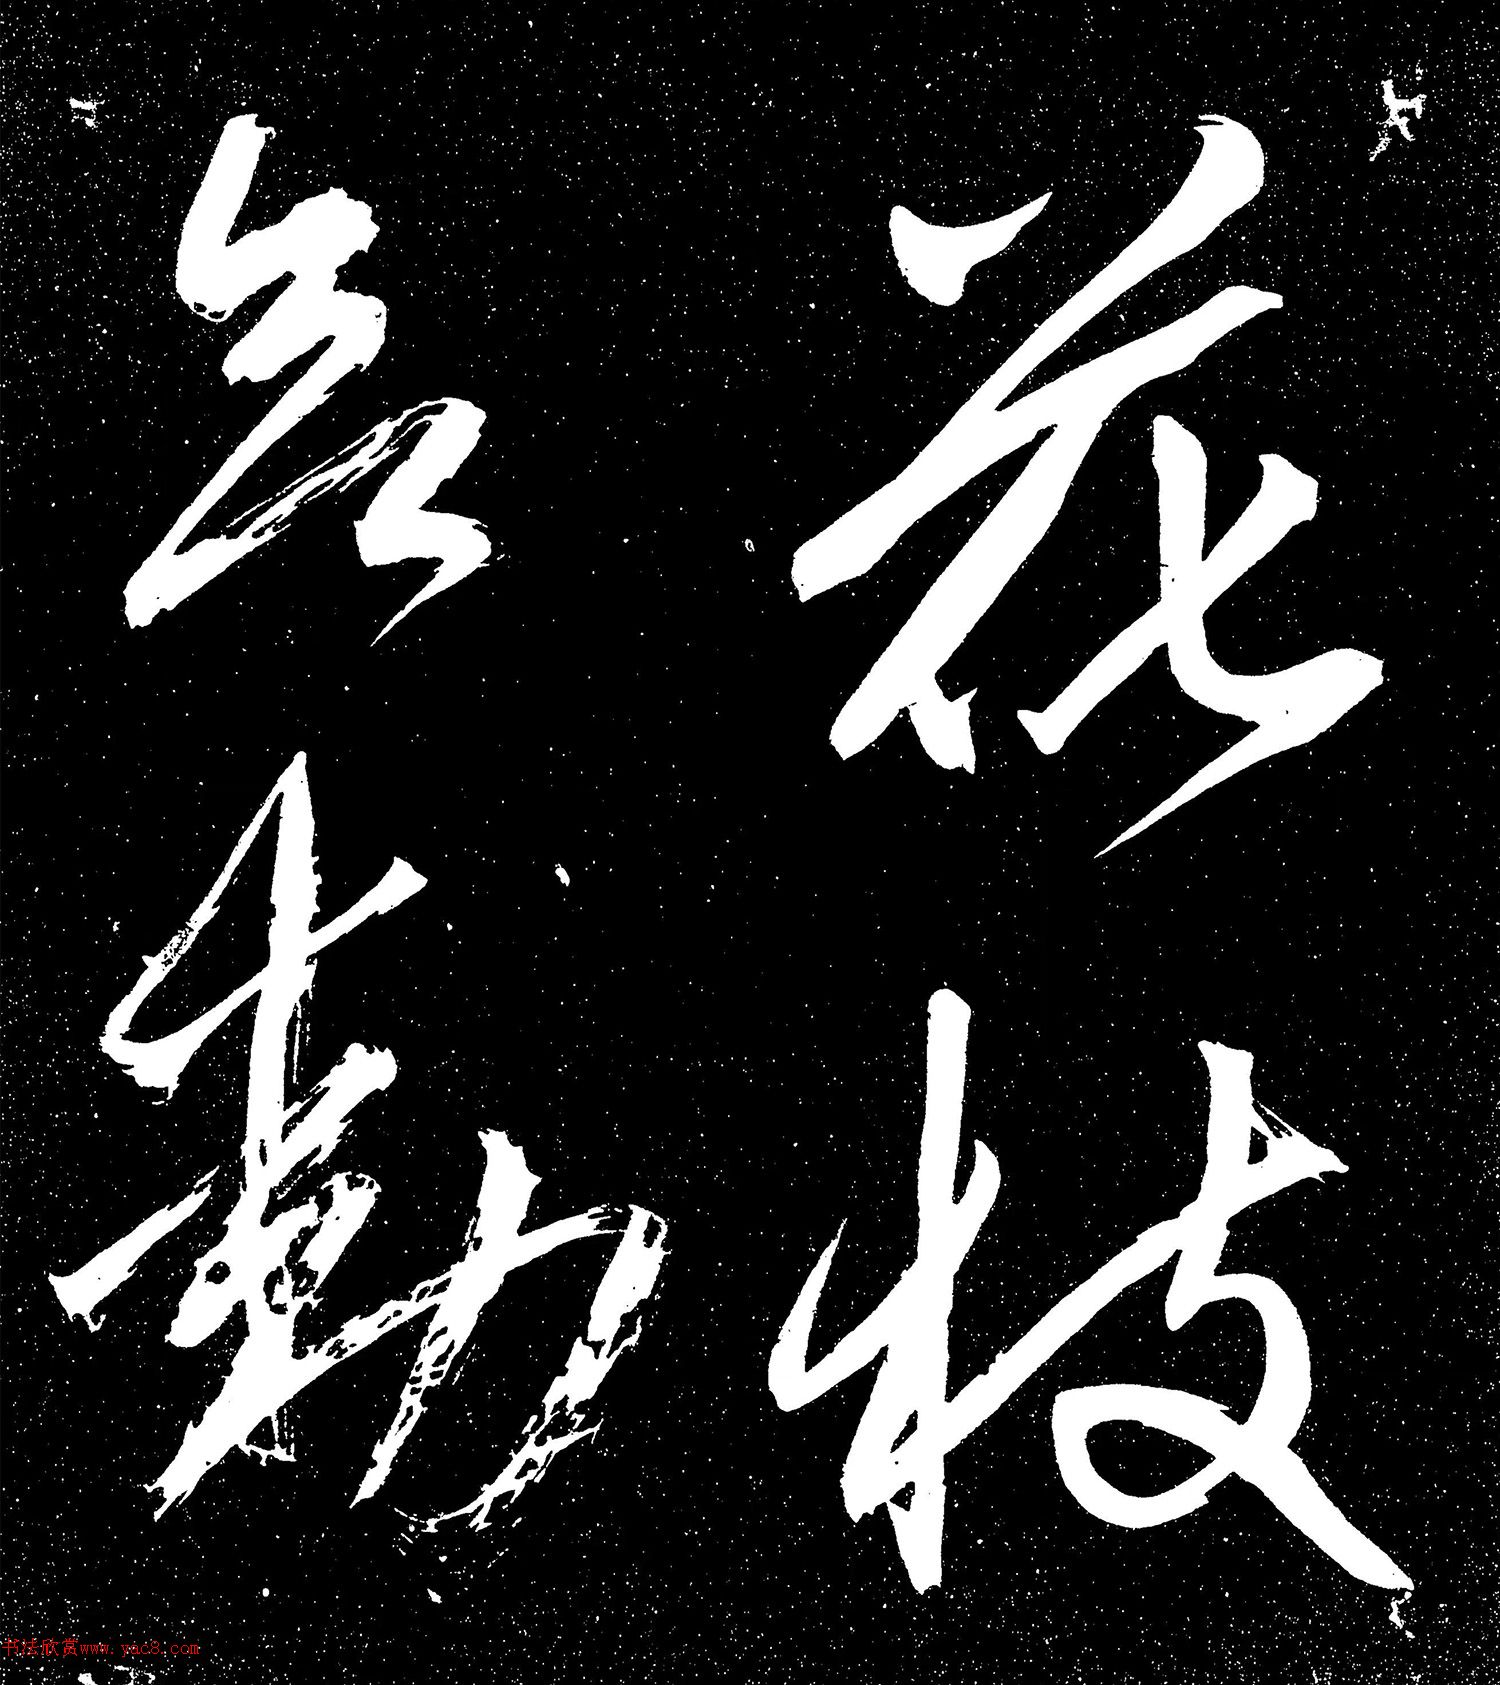 花枝
欲動
书法欣赏www.yac8.com